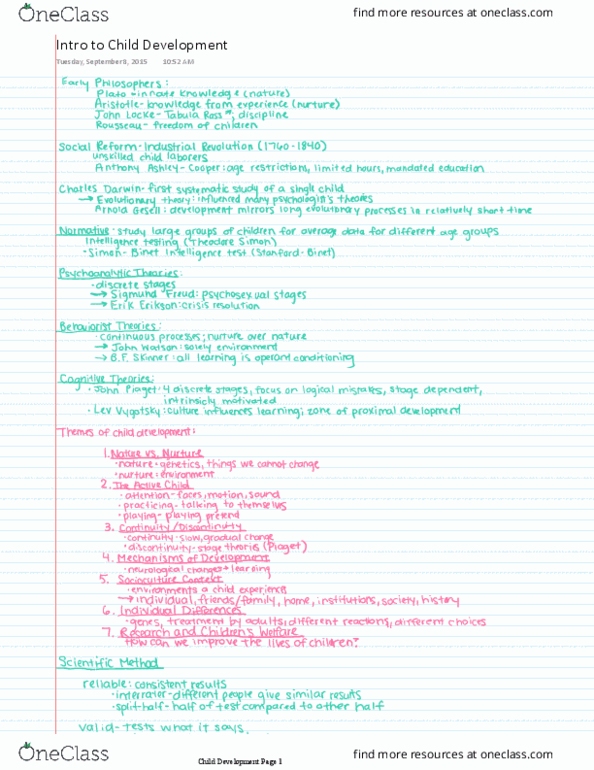 OneClass
find more resources at oneclass.com
Intro to Child Development
Tuesday, September 8, 2015 10:52 AM
Early Philosophers:
Plato - innate knowledge (nature)
Aristotle - knowledge from experience (nurture)
John Locke - Tabula Rasa, discipline
Rousseau - freedom of children
Social Reform - Industrial Revolution (1760-1840)
unskilled child laborers
Anthony Ashley-Cooper: age restrictions, limited hours, mandated education
Charles Darwin - first systematic study of a single child
→ Evolutionary theory: influenced many psychologin's theories
Arnold Gesell: development mirrors long evolutionary processes in relatively short time
Normative - study large groups of children for average data for different age groups
Intelligence testing (Theodore Simon)
• Simon-Binet Intelligence test (Stanford-Binet)
Psychoanalytic Theories:
• discrete stages
→ Sigmund Freud: psychosexual stages
→ Erik Erikson: crisis resolution
Behaviorist Theories:
• continuous processes; nurture over nature
→ John Watson: solely environment
→ B.F. Skinner: all learning is operant conditioning
Cognitive Theories:
• John Piaget: 4 discrete stages, focus on logical mistakes, stage dependent,
intrinsicly motivated
• Lev Vygotsky: culture influences learning; zone of proximal development
Themes of child development:
1. Nature vs. Nurture
• nature - genetics, things we cannot change
• nurture: environment
2. The Active Child
• attention - faces, motion, sound
• practicing - talking to themselves
• playing - playing pretend
3. Continuity/Discontinuity
• continuity - slow, gradual change
• discontinuity - stage theories (Piaget)
4. Mechanisms of Development
• neurological changes + learning
5. Socioculture Context
• environments a child experiences
→ individual, friends/family, home, institutions, society, history
6. Individual Differences
• genes, treatment by adults, different reactions, different choices
7. Research and Children's Welfare
How can we improve the lives of children?
Scientific Method
reliable: consistent results
• interrator - different people give similar results
• split-half - half of test compared to other half
valid - tests what it says
OneClass
Child Development Page 1
find more resources at oneclass.com